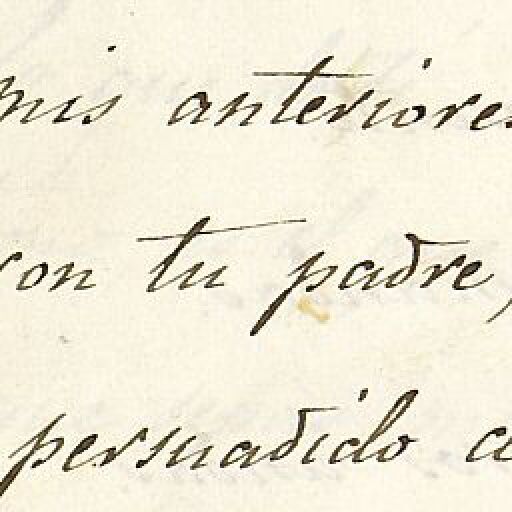 mis anteriores
con tu padre,
persuadido a